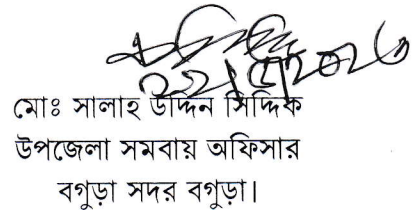 মোঃ সালাহ উদ্দিন সিদ্দিক
উপজেলা সমবায় অফিসার
বগুড়া সদর বগুড়া।